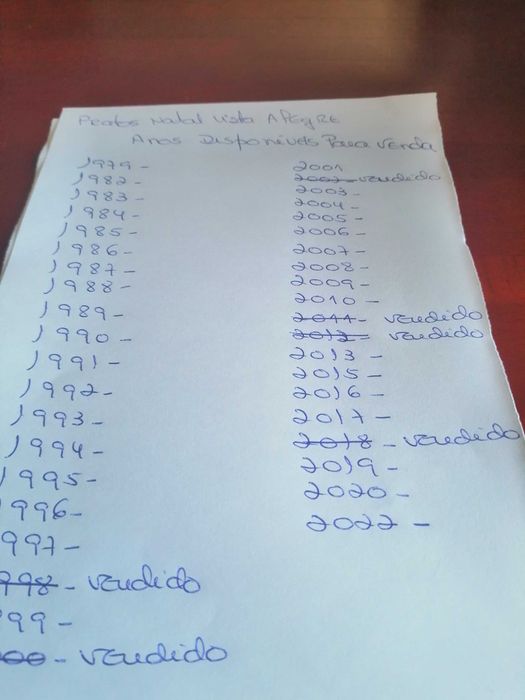 Pratos Natal Vista AlEgRE
Anos Disponíveis Para Venda
1979-
1982-
1983-
1984-
1985-
1986-
1987-
1988-
1989-
1990-
1991-
1992-
1993-
1994-
1995-
996-
997-
998- vendido
99-
00- vendido
2001
2002- vendido
2003-
2004-
2005-
2006-
2007-
2008-
2009-
2010-
2011- vendido
2012- vendido
2013-
2015-
2016-
2017-
2018- vendido
2019-
2020-
2022-